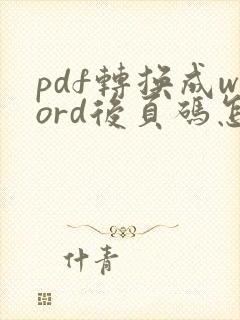 pdf轉換成w
ord後頁碼怎
什青